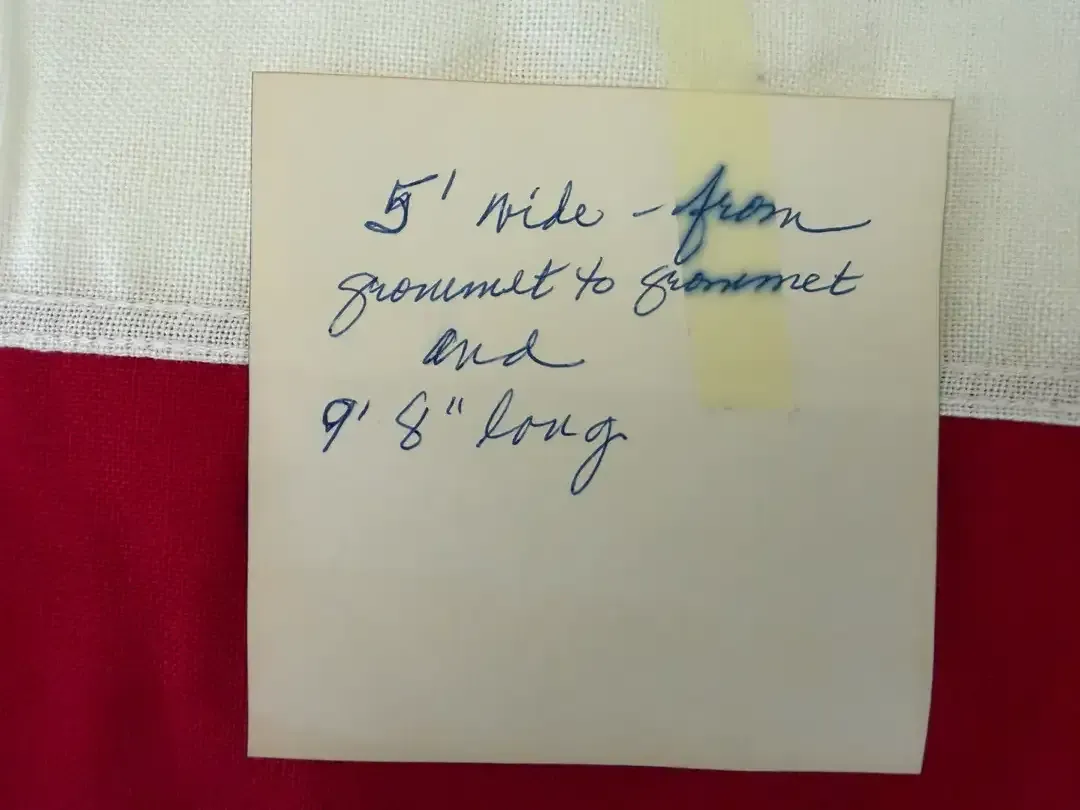 5' wide - from
grommet to grommet
and
9' 8" long